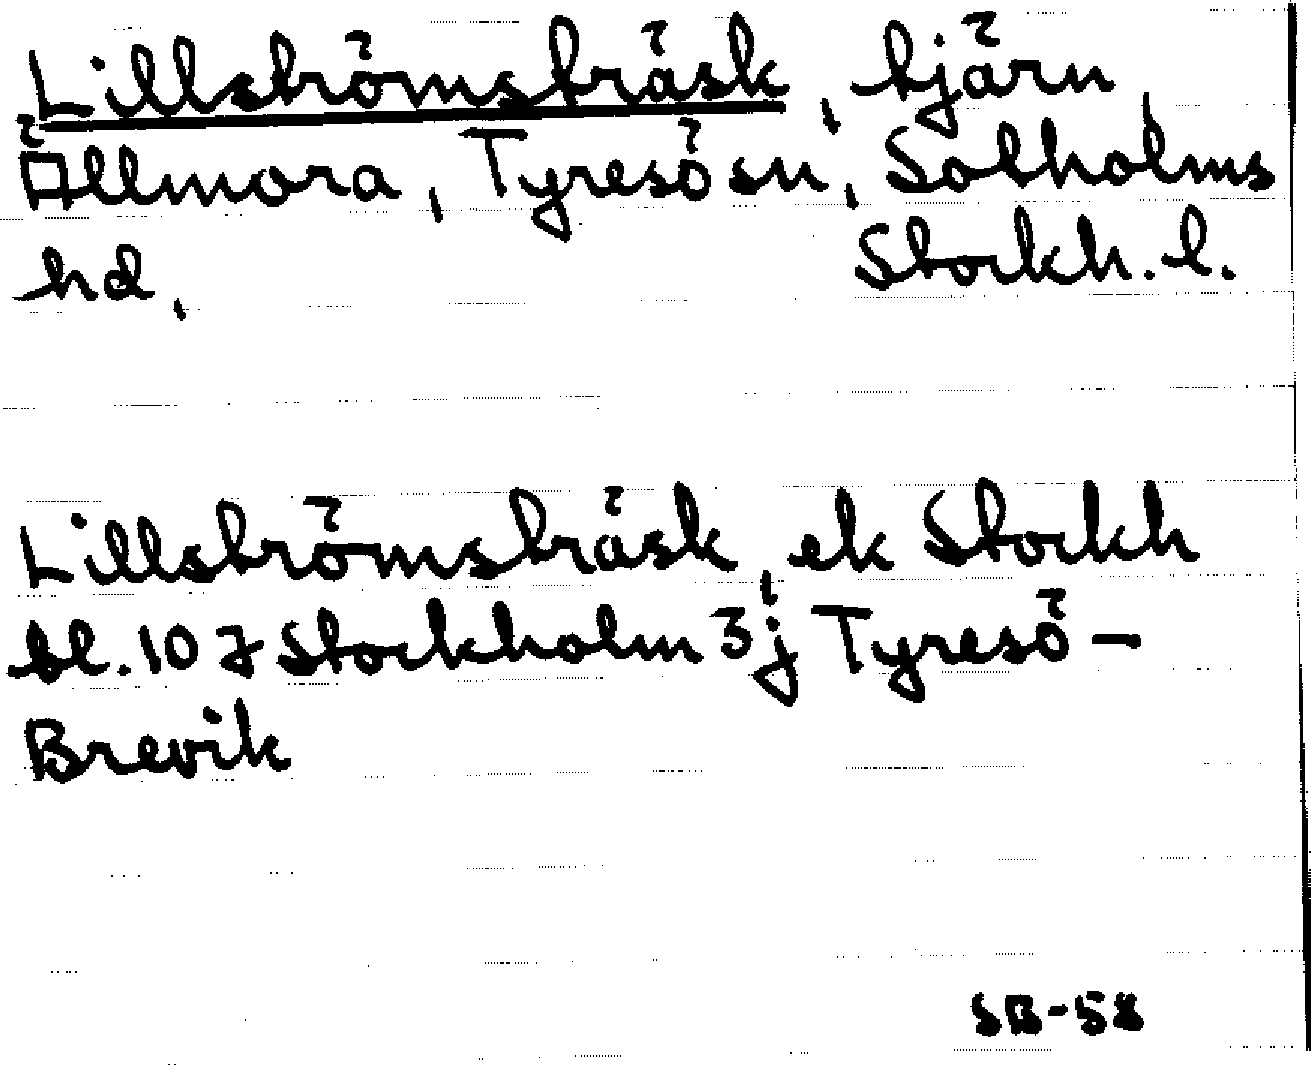 Lillströmsträsk, tjärn,
Ällmora, Tyresö sn, Sotholms
hd, Stockh. l.
Lillströmsträsk, ek Stockh
bl. 107 Stockholm 3j Tyresö-
Brevik
SB-58